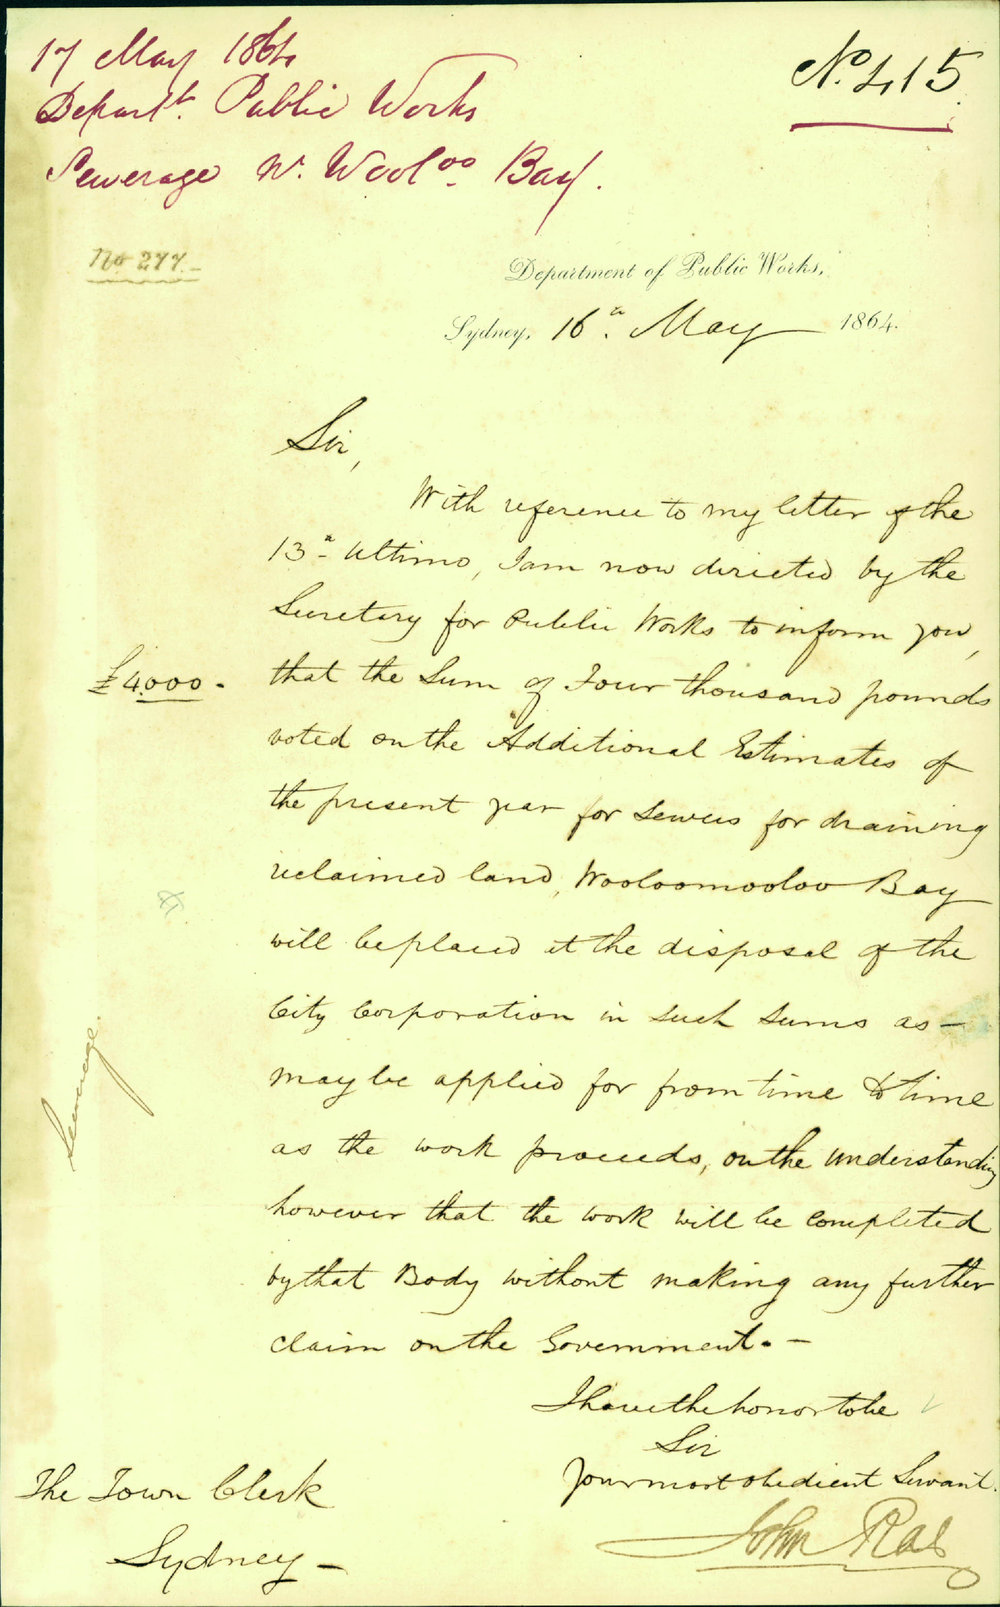 17 May 1864
Departt. Public Works
Sewerage W. Wooloo. Bay.
No. 415
No 277.
Department of Public Works,
Sydney, 16th. May 1864.
Sir,
With reference to my letter of the
13th Ultimo, I am now directed by the
Secretary for Public Works to inform you,
£4000.
that the Sum of Four thousand pounds
voted on the Additional Estimates of
the present year for Sewers for draining
reclaimed land, Wooloomooloo Bay
will be placed at the disposal of the
City Corporation in such sums as —
may be applied for from time to time
as the work proceeds, on the understanding
however that the work will be completed
by that Body without making any further
claim on the Government. —
Sewerage.
I have the honor to be
Sir
Your most obedient Servant.
John Rae
The Town Clerk
Sydney —